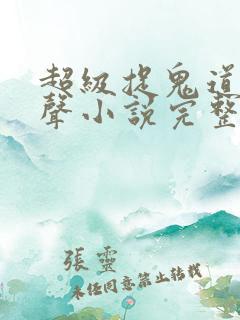 超級捉鬼道
聲小說完整
張靈
未經同意禁止轉載